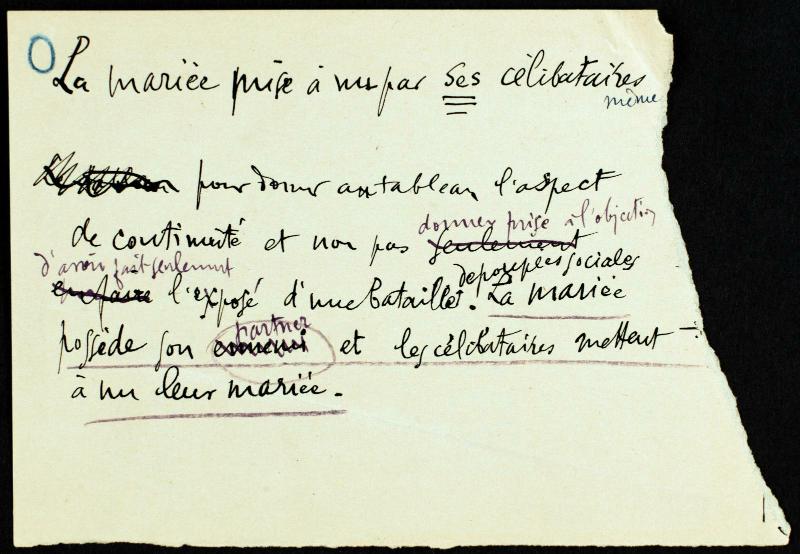 La mariée mise à nu par ses célibataires
même
pour donner au tableau l'aspect
donner prise à l'objection
de continuité et non pas seulement
d'avoir fait seulement
de poupées sociales
en faire l'exposé d'une bataille. La mariée
partner
possède son ennemi et les célibataires mettent
à nu leur mariée.